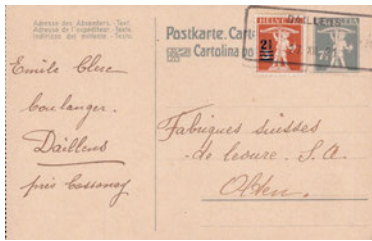 Adresse des Absenders. - Text.
Adresse de l'expéditeur. - Texte.
Indirizzo del mittente. - Testo.
Postkarte. Carte
Cartolina po
HELVE
2½
7½
DAILLENS
Emile Clerc
boulanger.
Daillens
près Cossonay
Fabriques suisses
de levure. S. A.
Olten.